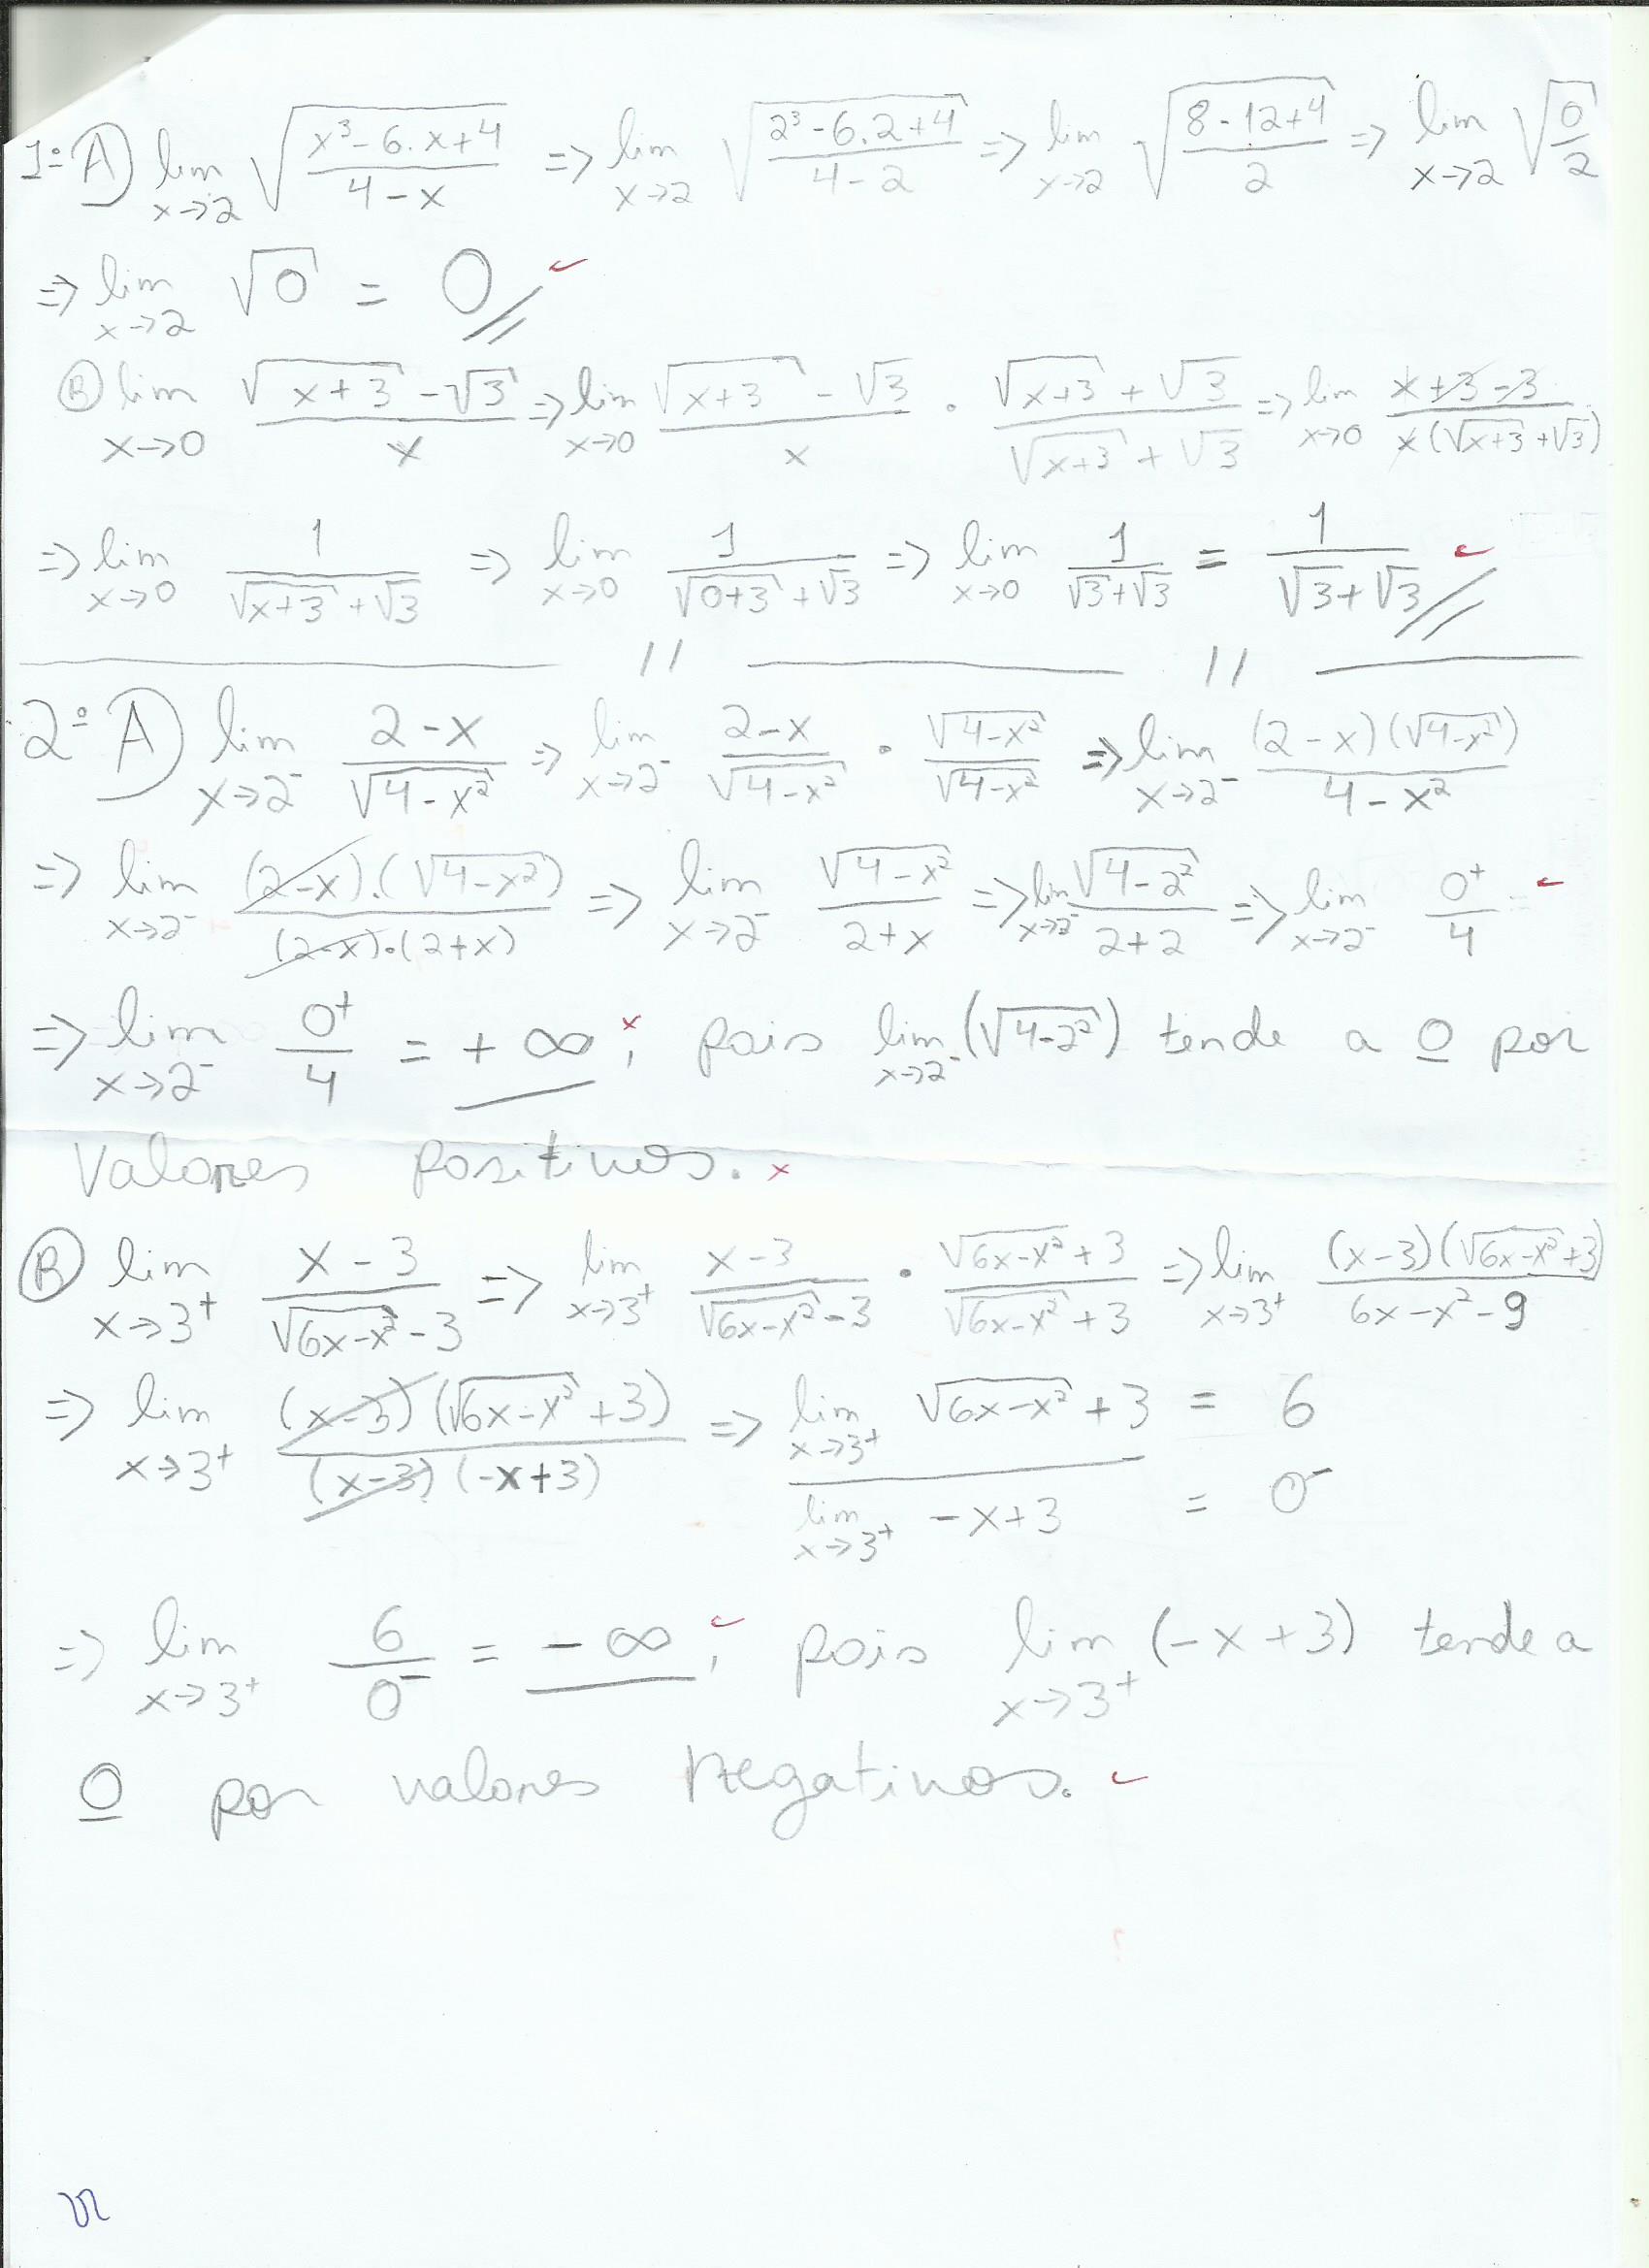 1º A) lim x→2 √((x³-6.x+4)/(4-x)) => lim x→2 √((2³-6.2+4)/(4-2)) => lim x→2 √((8-12+4)/2) => lim x→2 √(0/2)
=> lim x→2 √0 = 0 ✓
B) lim x→0 (√(x+3) - √3)/x => lim x→0 (√(x+3) - √3)/x · (√(x+3) + √3)/(√(x+3) + √3) => lim x→0 (x+3-3)/(x(√(x+3)+√3))
=> lim x→0 1/(√(x+3)+√3) => lim x→0 1/(√(0+3)+√3) => lim x→0 1/(√3+√3) = 1/(√3+√3) ✓
// //
2º A) lim x→2⁻ (2-x)/√(4-x²) => lim x→2⁻ (2-x)/√(4-x²) · √(4-x²)/√(4-x²) => lim x→2⁻ (2-x)(√(4-x²))/(4-x²)
=> lim x→2⁻ (2-x).(√(4-x²))/((2-x).(2+x)) => lim x→2⁻ √(4-x²)/(2+x) => lim x→2⁻ √(4-2²)/(2+2) => lim x→2⁻ 0⁺/4 = ✓
=> lim x→2⁻ 0⁺/4 = +∞ x; pois lim x→2⁻ (√(4-2²)) tende a 0 por
valores positivos. x
B) lim x→3⁺ (x-3)/(√(6x-x²)-3) => lim x→3⁺ (x-3)/(√(6x-x²)-3) · (√(6x-x²)+3)/(√(6x-x²)+3) => lim x→3⁺ (x-3)(√(6x-x²)+3)/(6x-x²-9)
=> lim x→3⁺ (x-3)(√(6x-x²)+3)/((x-3)(-x+3)) => lim x→3⁺ √(6x-x²)+3 = 6
lim x→3⁺ -x+3 = 0⁻
=> lim x→3⁺ 6/0⁻ = -∞ ✓; pois lim x→3⁺ (-x+3) tende a
0 por valores negativos. ✓
?